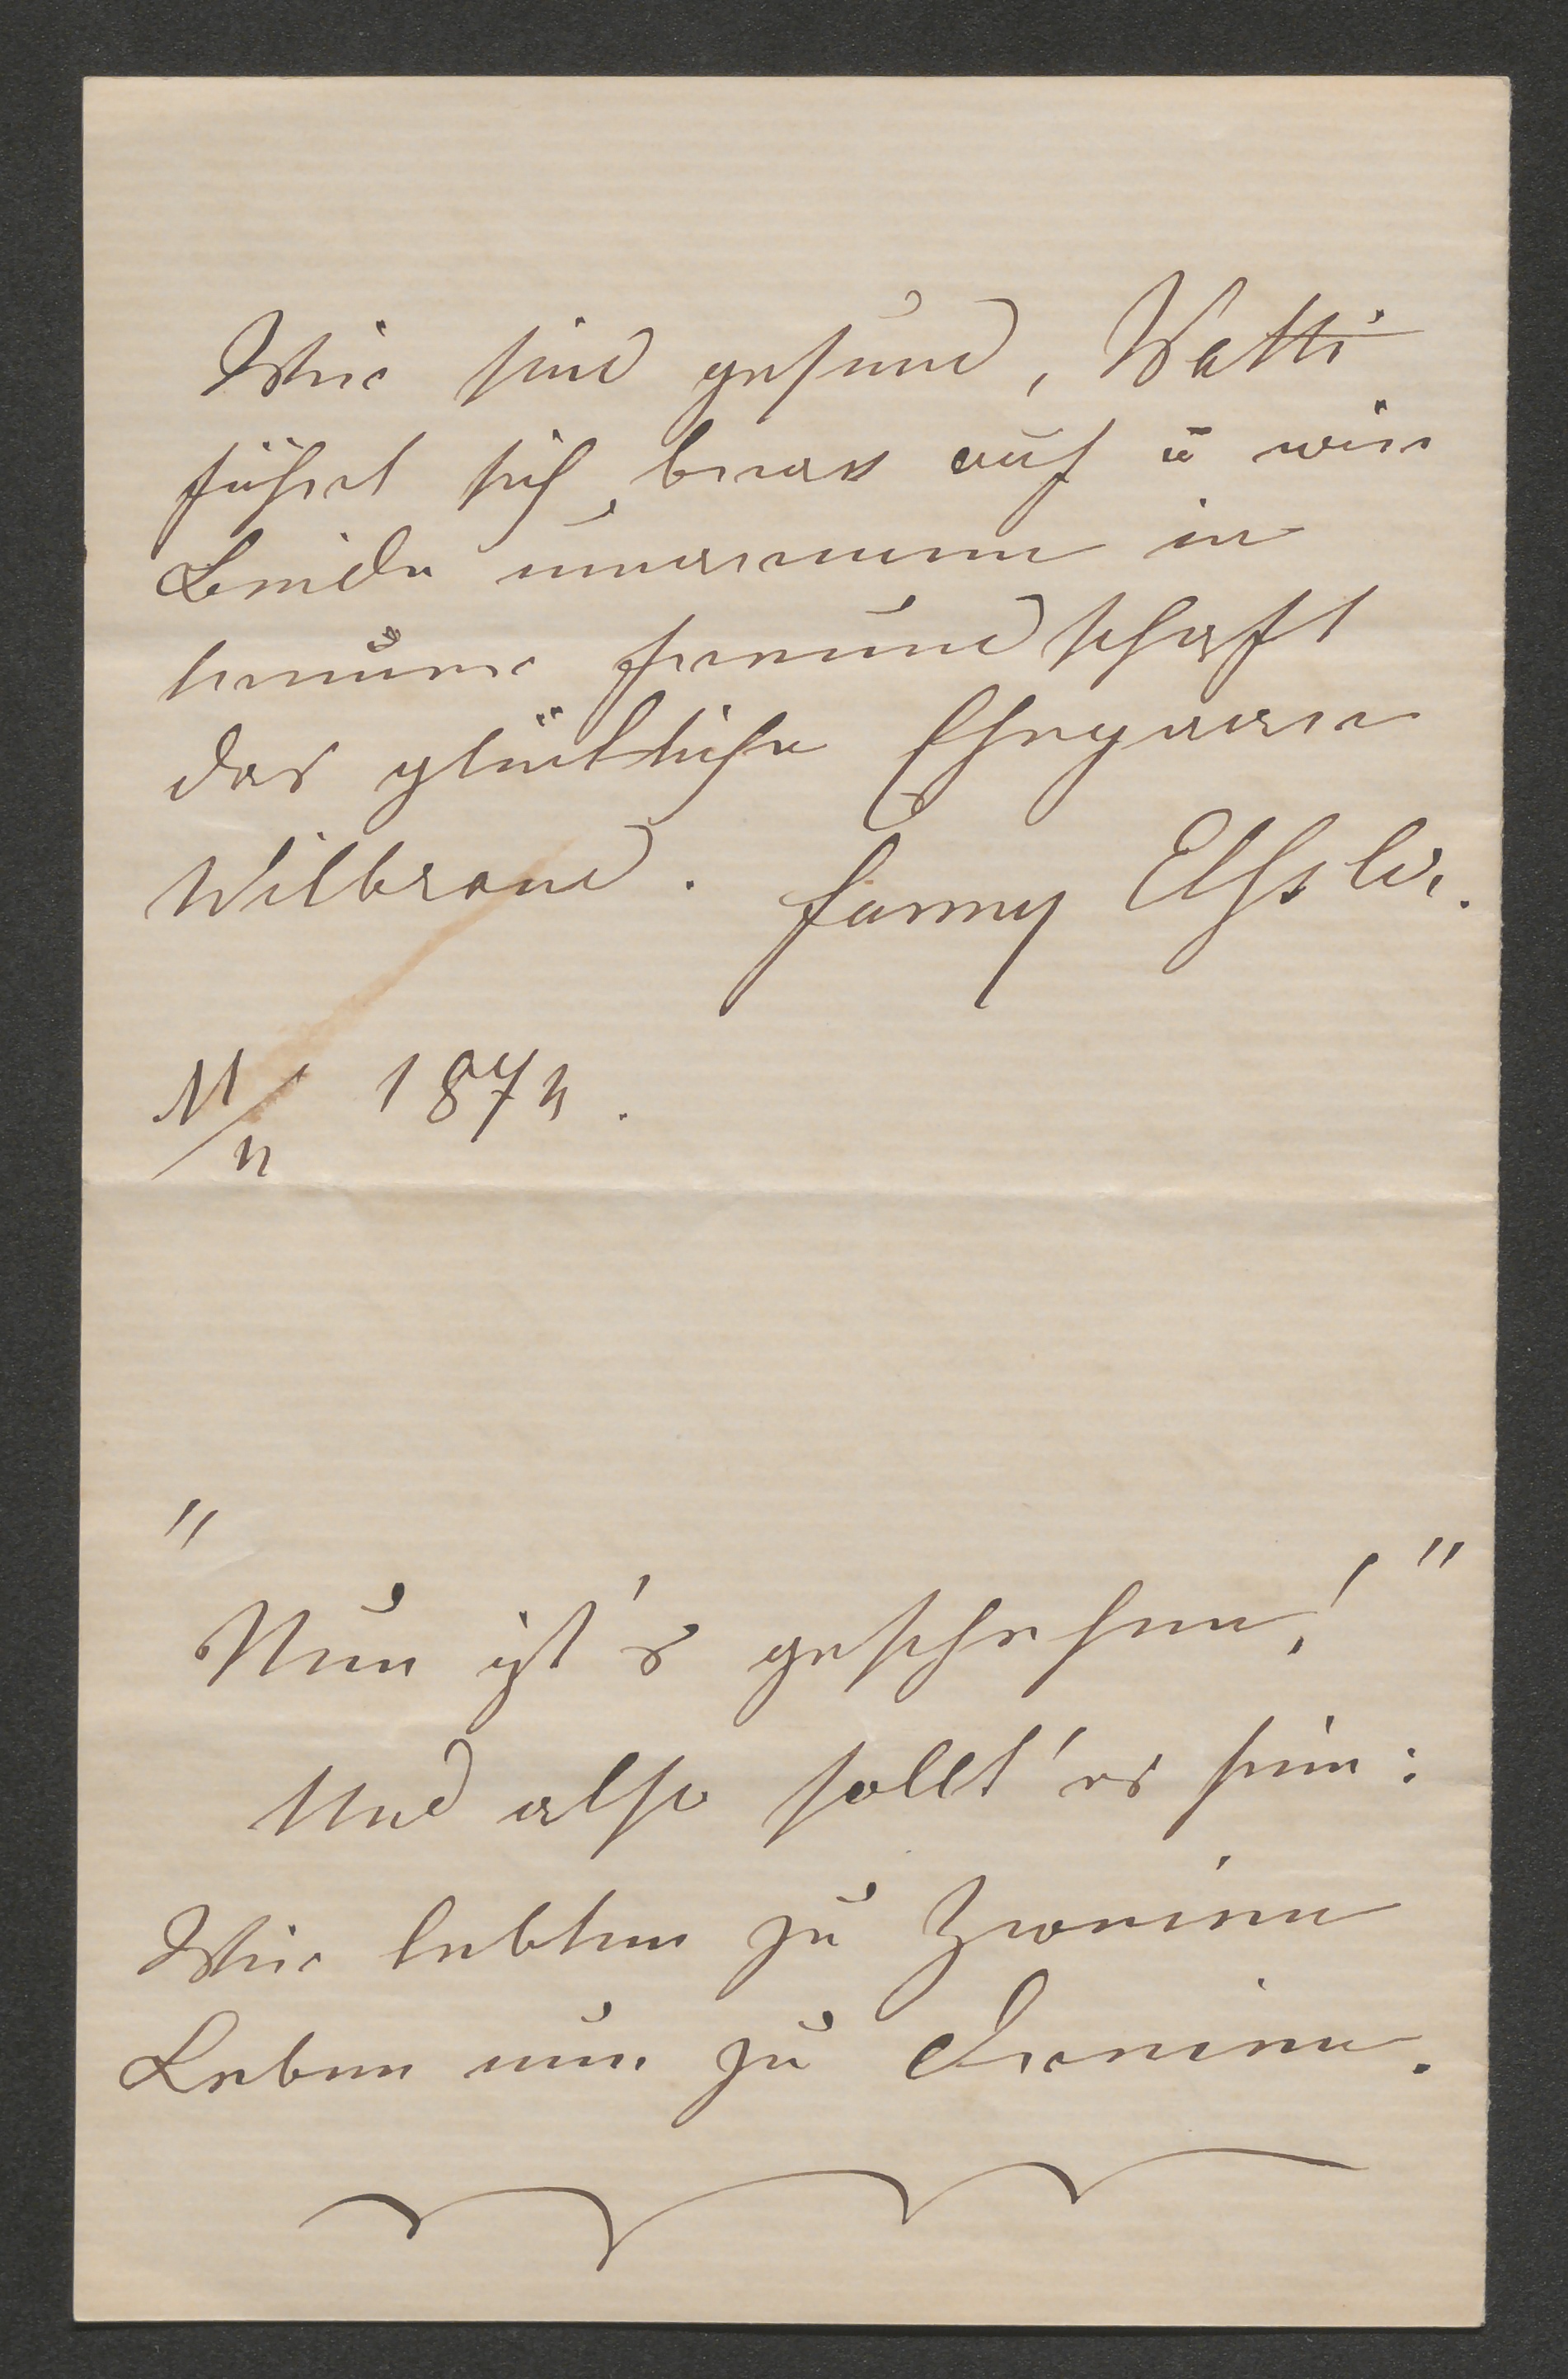 Wir sind gesund, Watti
führt sich brav auf ū wir
Beide umarmen in
treuer Freundschaft
das glückliche Ehepaar
Wilbrand. Fanny Elßler.
11/4 1874.
"Nun ist's geschehen!"
Und also sollt' es sein:
Wir lebten zu Zweien
Leben nun zu Dreien.